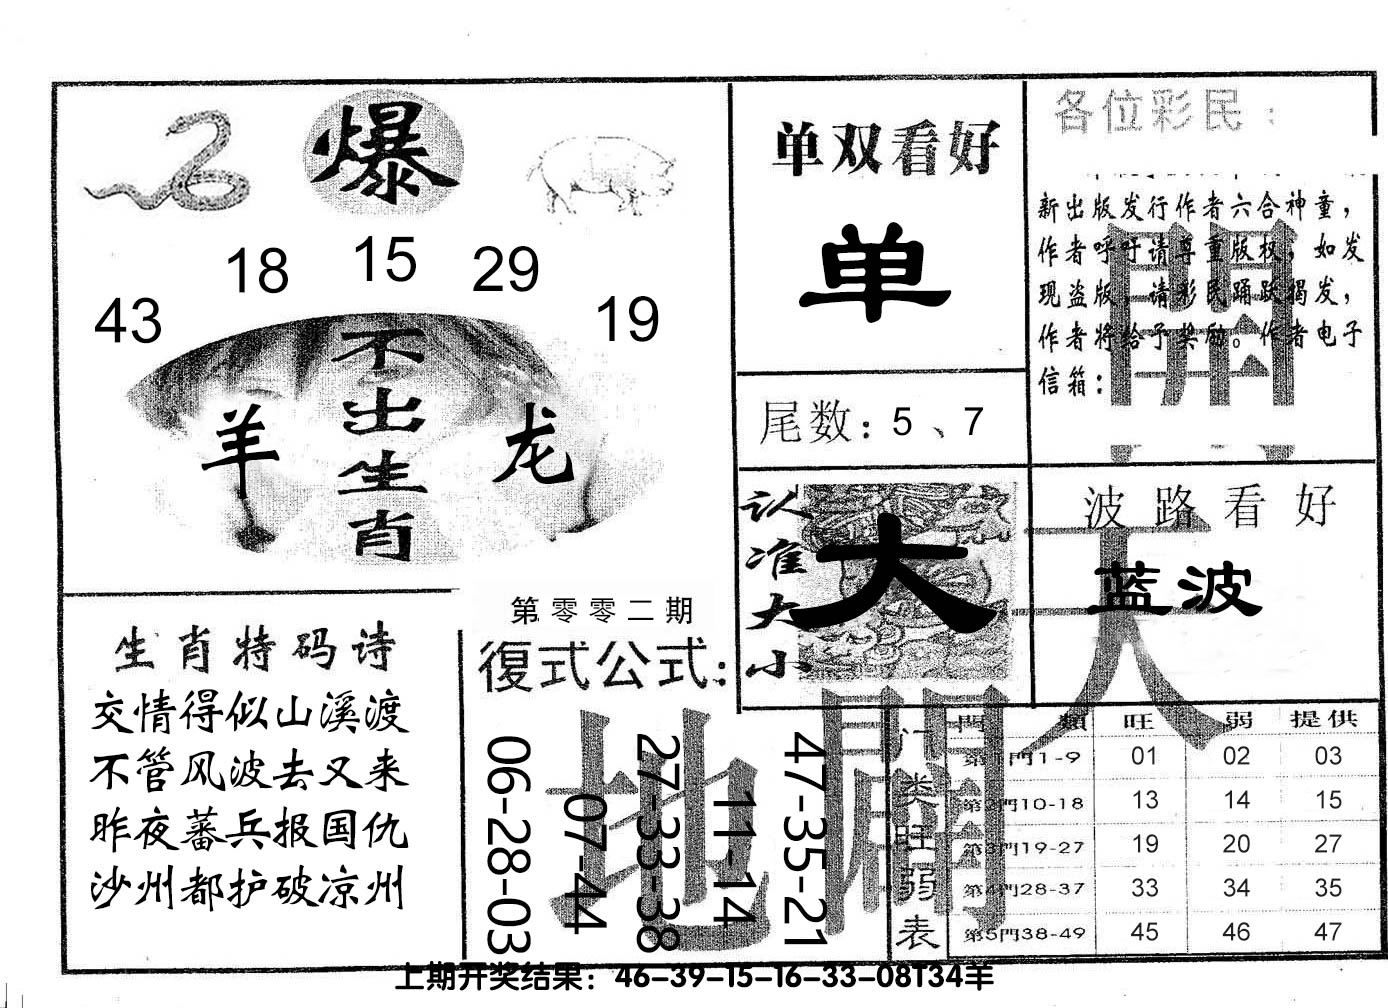 爆
43 18 15 29 19
不出生肖
羊 龙
单双看好
单
尾数：5、7
各位彩民：
新出版发行作者六合神童，
作者呼吁请尊重版权，如发
现盗版，请彩民踊跃揭发，
作者将给予奖励。作者电子
信箱：
開
认准大小
大
波路看好
蓝波
天
生肖特码诗
交情得似山溪渡
不管风波去又来
昨夜蕃兵报国仇
沙州都护破凉州
第零零二期
復式公式：
06-28-03
07-44
27-33-38
11-14
47-35-21
地
門类旺弱表
門類 旺 弱 提供
第1門1-9 01 02 03
第2門10-18 13 14 15
第3門19-27 19 20 27
第4門28-37 33 34 35
第5門38-49 45 46 47
上期开奖结果：46-39-15-16-33-08T34羊